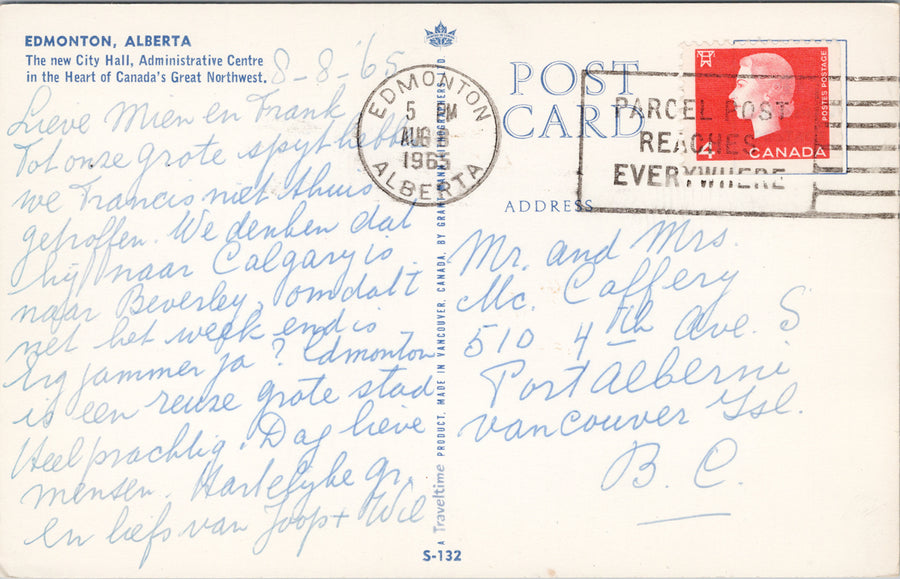 EDMONTON, ALBERTA
The new City Hall, Administrative Centre
in the Heart of Canada's Great Northwest.
8-8-'65
Lieve Mien en Frank
Tot onze grote spyt hebben
we Francis niet thuis
getroffen. We denken dat
hij naar Calgary is
naar Beverley, omdat 't
net het week end is
Erg jammer ja? Edmonton
is een reuze grote stad
Heel prachtig. Dag lieve
mensen. Hartelijke gr.
en liefs van Joop + Wil
EDMONTON
5 PM
AUG
1965
ALBERTA
POST
CARD
ADDRESS
PARCEL POST
REACHES
EVERYWHERE
POSTES POSTAGE
4 CANADA
Mr. and Mrs.
Mc. Caffery
510 4th Ave. S
Port Alberni
Vancouver Isl.
B.C.
A Traveltime PRODUCT, MADE IN VANCOUVER, CANADA, BY GRANT-MANN LITHOGRAPHERS LTD.
S-132